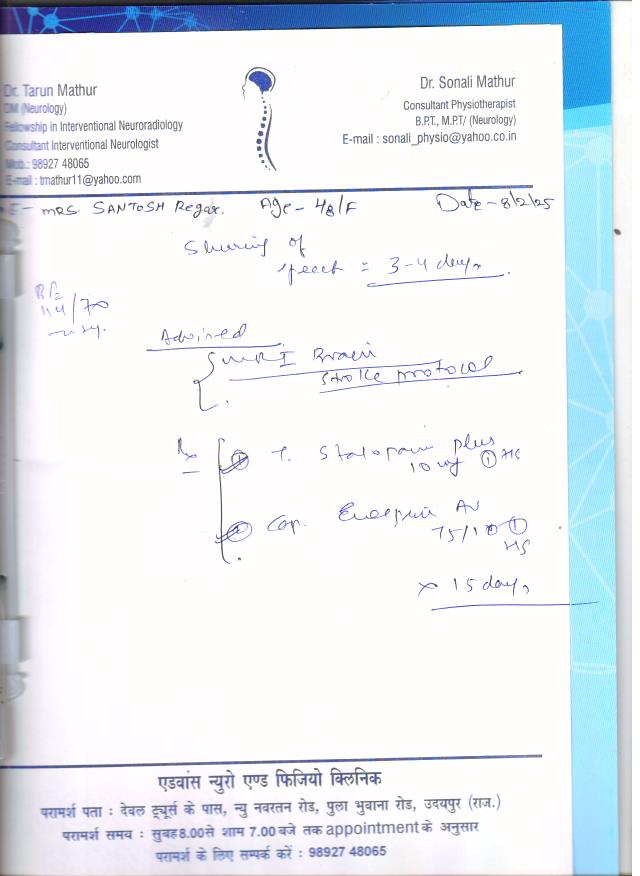 Dr. Tarun Mathur
DM (Neurology)
Fellowship in Interventional Neuroradiology
Consultant Interventional Neurologist
Mob.: 98927 48065
E-mail : tmathur11@yahoo.com
Dr. Sonali Mathur
Consultant Physiotherapist
B.P.T., M.P.T/ (Neurology)
E-mail : sonali_physio@yahoo.co.in
MRS. SANTOSH Regar. Age - 48/F Date - 8/2/25
Slurring of
speech = 3-4 days
114/70
Advised
MRI Brain
Stroke protocol
Rx
① T. Stalopam plus
10 mg ① HS
Cap.
75/10 ①
HS
x 15 days
एडवांस न्युरो एण्ड फिजियो क्लिनिक
परामर्श पता : देवल ट्यूर्स के पास, न्यु नवरतन रोड, पुला भुवाना रोड, उदयपुर (राज.)
परामर्श समय : सुबह 8.00 से शाम 7.00 बजे तक appointment के अनुसार
परामर्श के लिए सम्पर्क करें : 98927 48065